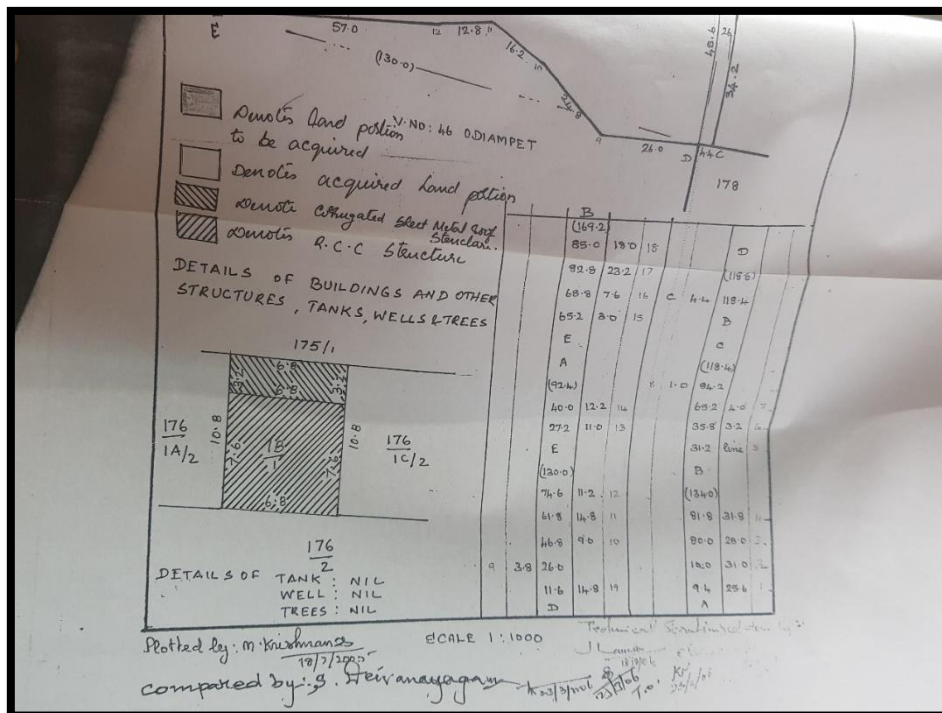 E
57.0 12 12.8 11
16.2 15
(130.0)
24.8
9 26.0 D 4.4 C
48.6 26 34.2
178
Denotes Land portion V.NO: 46 ODIAMPET
to be acquired
Denotes acquired Land potion
Denote Corrugated Sheet Metal Roof
Denotes R.C.C Structure
DETAILS OF BUILDINGS AND OTHER
STRUCTURES, TANKS, WELLS & TREES
175/1
6.8
3.2 3.2
6.8
10.8 10.8
176
1A/2
176
1C/2
7.6 7.6
1B
1
6.8
176
2
DETAILS OF TANK : NIL
WELL : NIL
TREES : NIL
B
(169.2)
85.0 18.0 18
82.8 23.2 17
68.8 7.6 16
65.2 3.0 15
E
A
(92.4)
40.0 12.2 14
27.2 11.0 13
E
(130.0)
74.6 11.2 12
61.8 14.8 11
46.8 9.0 10
9 3.8 26.0
11.6 14.8 19
D
D
(118.6)
C 4.4 118.4
B
C
(118.4)
1.0 94.2
65.2 4.0 7
35.8 3.2 6
31.2 line 5
B
(134.0)
81.8 31.8
80.0 28.0
10.0 31.0 2
9.4 25.6 1
A
Plotted by: M. Krishnan
SCALE 1:1000
18/7/2005
compared by: S. Deivanayagam
T.O.